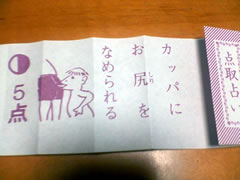 点取占い
カッパに
お尻を
しり
なめられる
5点